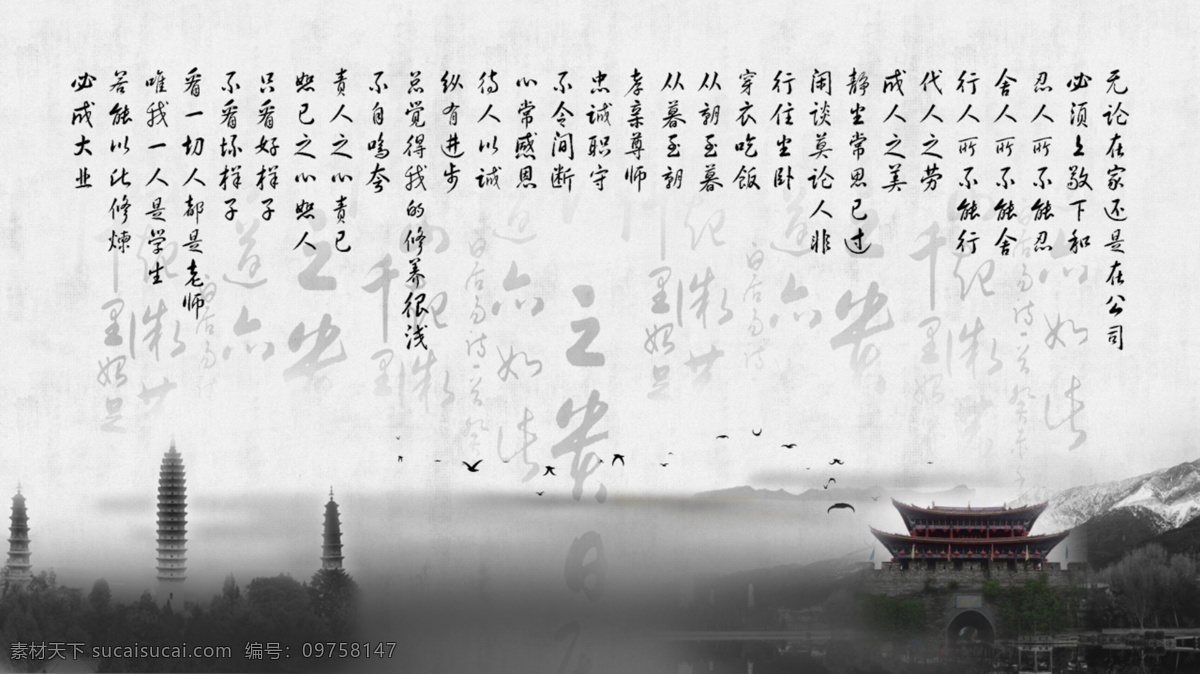 无论在家还是在公司
必须上敬下和
忍人所不能忍
舍人所不能舍
行人所不能行
代人之劳
成人之美
静坐常思己过
闲谈莫论人非
行住坐卧
穿衣吃饭
从朝至暮
从暮至朝
孝亲尊师
忠诚职守
不令间断
心常感恩
待人以诚
纵有进步
总觉得我的修养很浅
不自鸣夸
责人之心责己
恕己之心恕人
只看好样子
不看坏样子
看一切人都是老师
唯我一人是学生
若能以此修煉
必成大业
素材天下 sucaisucai.com 编号：09758147